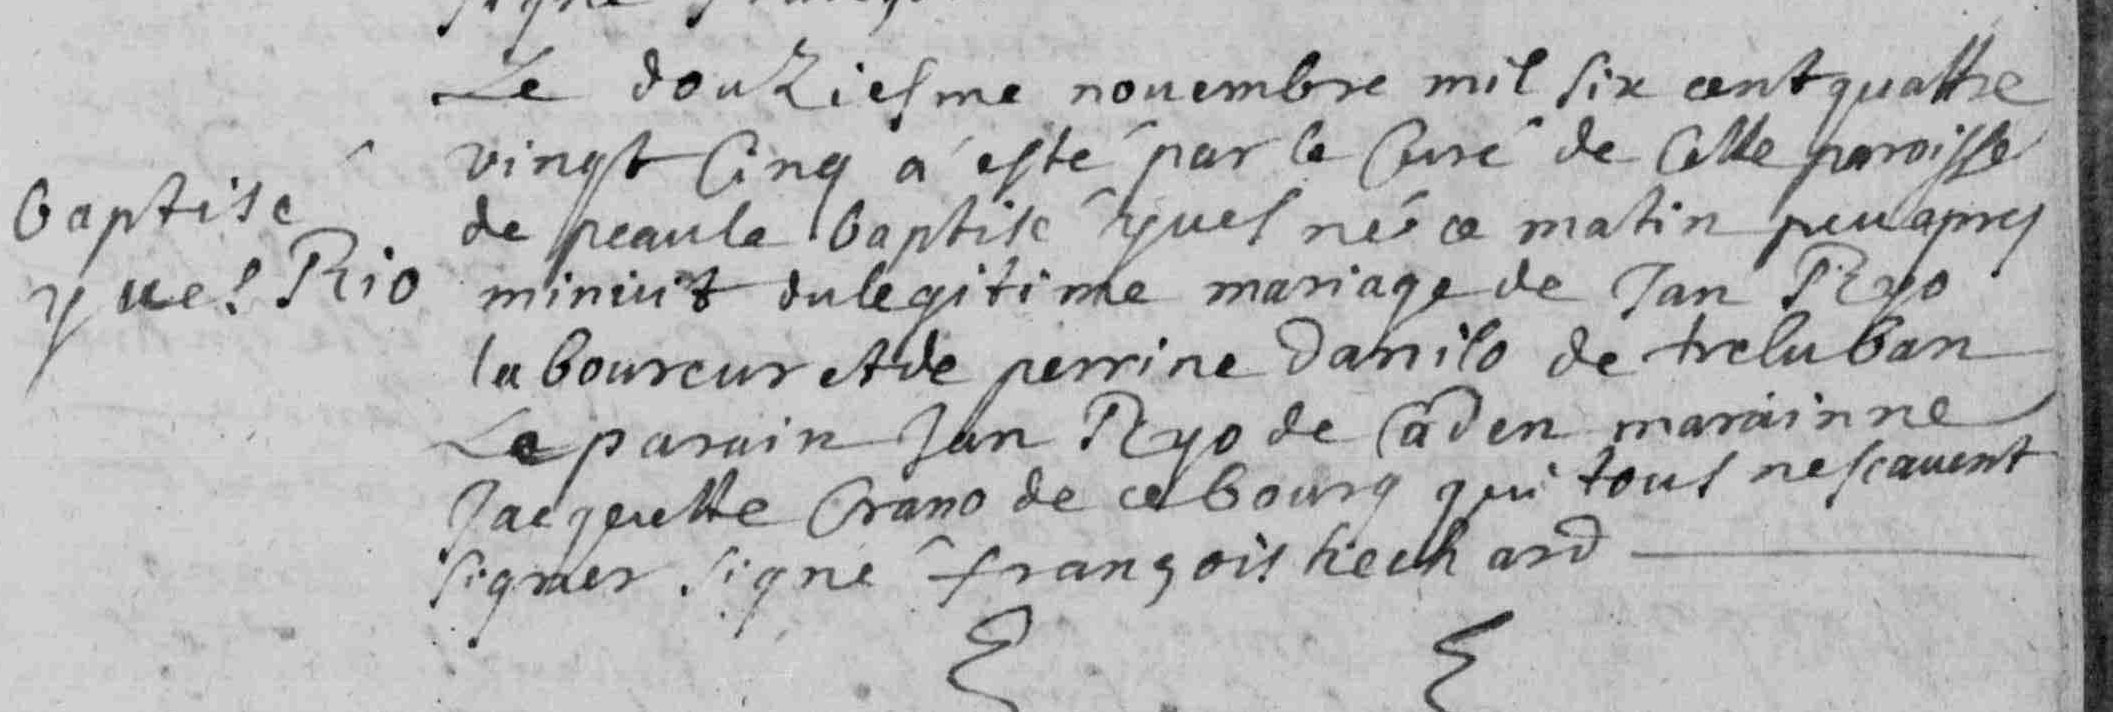 Le douziesme nouembre mil six cent quattre
vingt Cinq a esté par le Curé de Cette paroisse
de peaule baptisé yues né ce matin peu apres
miniuit du legitime mariage de Jan Ryo
laboureur et de perrine Danilo de treluban
Le parain Jan Ryo de Caden marainne
Jacquette Crano de ce bourg qui tous ne scauent
signer signé françois
baptisé
yues Rio